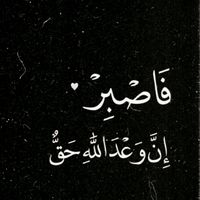 فَاصْبِرْ
إِنَّ وَعْدَ اللَّهِ حَقٌّ